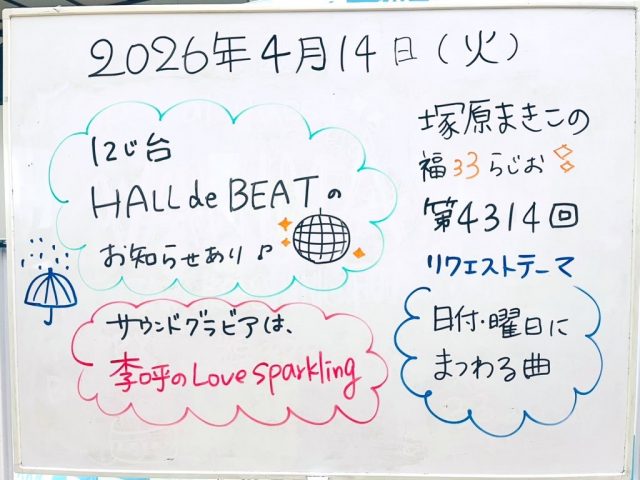 2026年4月14日(火)
12じ台
HALL de BEATの
お知らせあり♪
サウンドグラビアは、
李呼のLove sparkling
塚原まきこの
福33らじお
第4314回
リクエストテーマ
日付・曜日に
まつわる曲